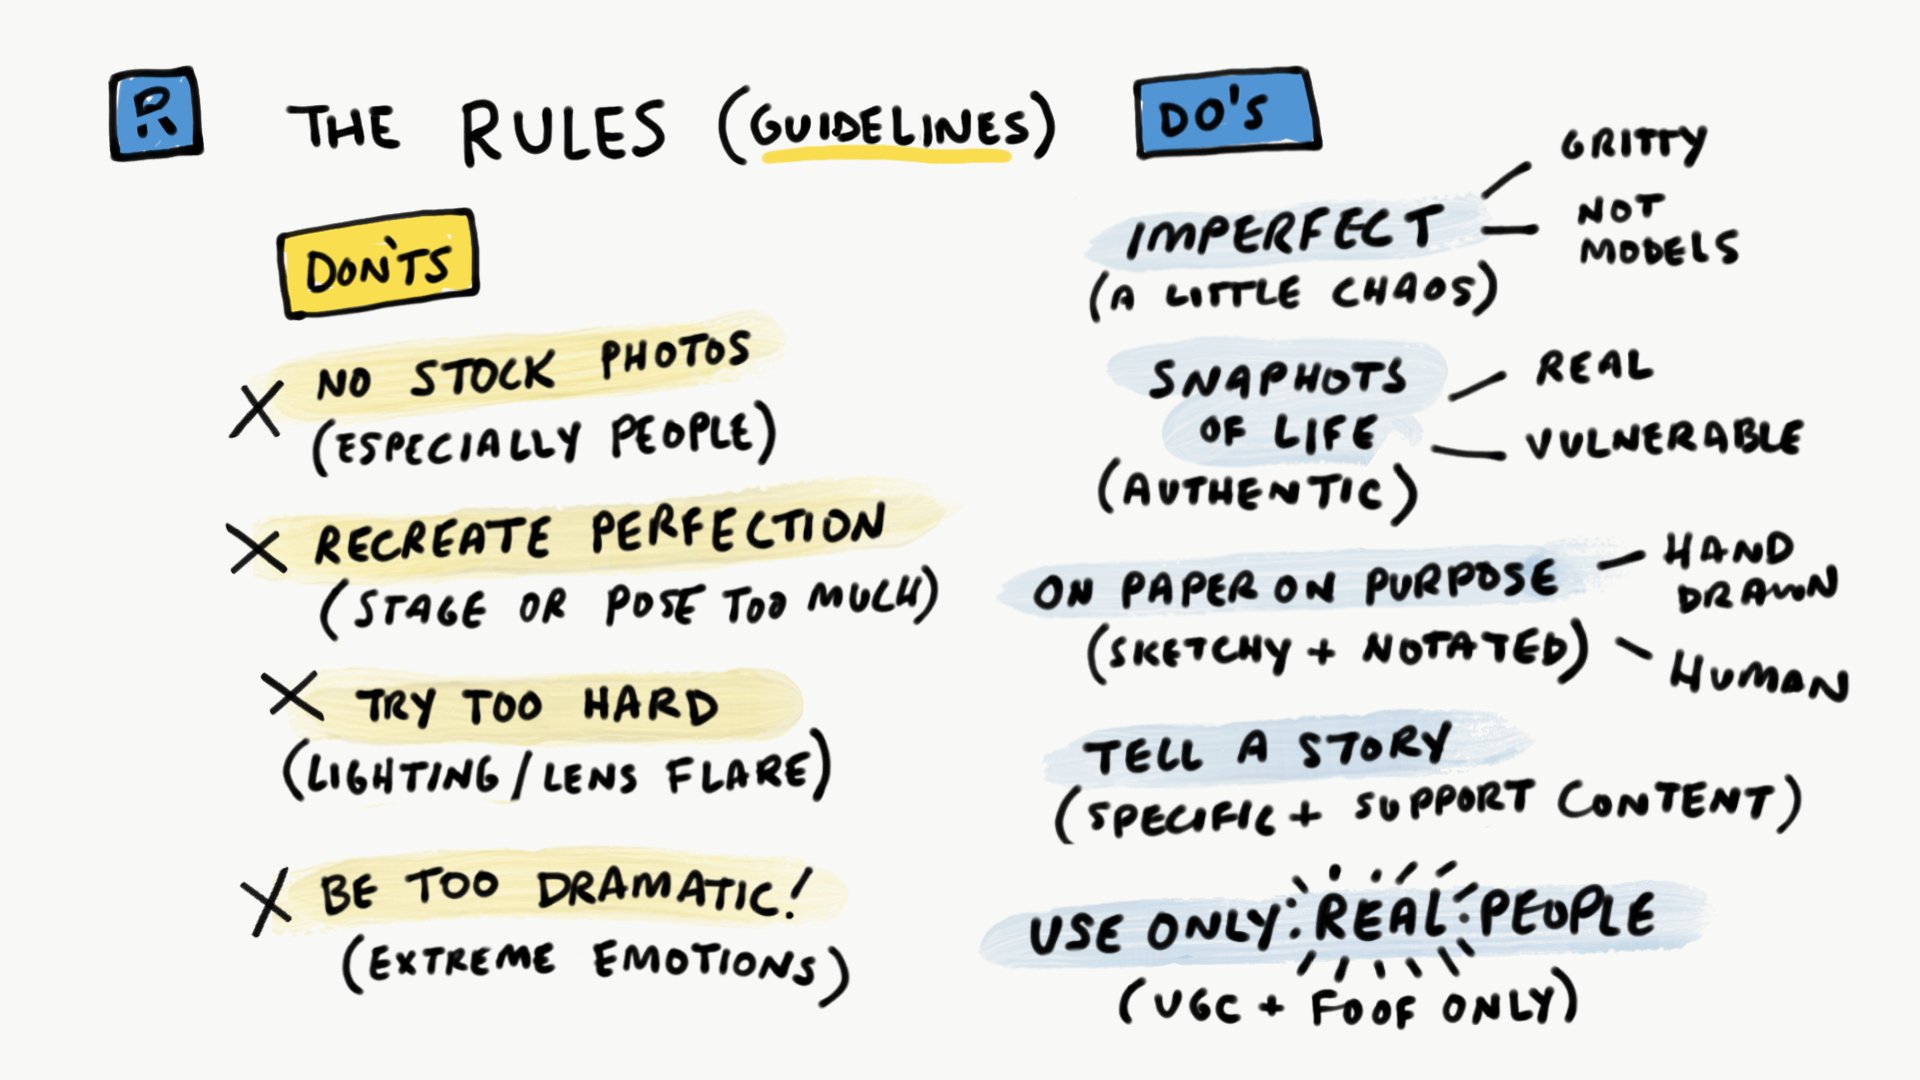 R
THE RULES (GUIDELINES)
DON'TS
NO STOCK PHOTOS
(ESPECIALLY PEOPLE)
RECREATE PERFECTION
(STAGE OR POSE TOO MUCH)
TRY TOO HARD
(LIGHTING/LENS FLARE)
BE TOO DRAMATIC!
(EXTREME EMOTIONS)
DO'S
IMPERFECT
(A LITTLE CHAOS)
GRITTY
NOT
MODELS
SNAPHOTS
OF LIFE
(AUTHENTIC)
REAL
VULNERABLE
ON PAPER ON PURPOSE
(SKETCHY + NOTATED)
HAND
DRAWN
HUMAN
TELL A STORY
(SPECIFIC + SUPPORT CONTENT)
USE ONLY REAL PEOPLE
(UGC + FOOF ONLY)